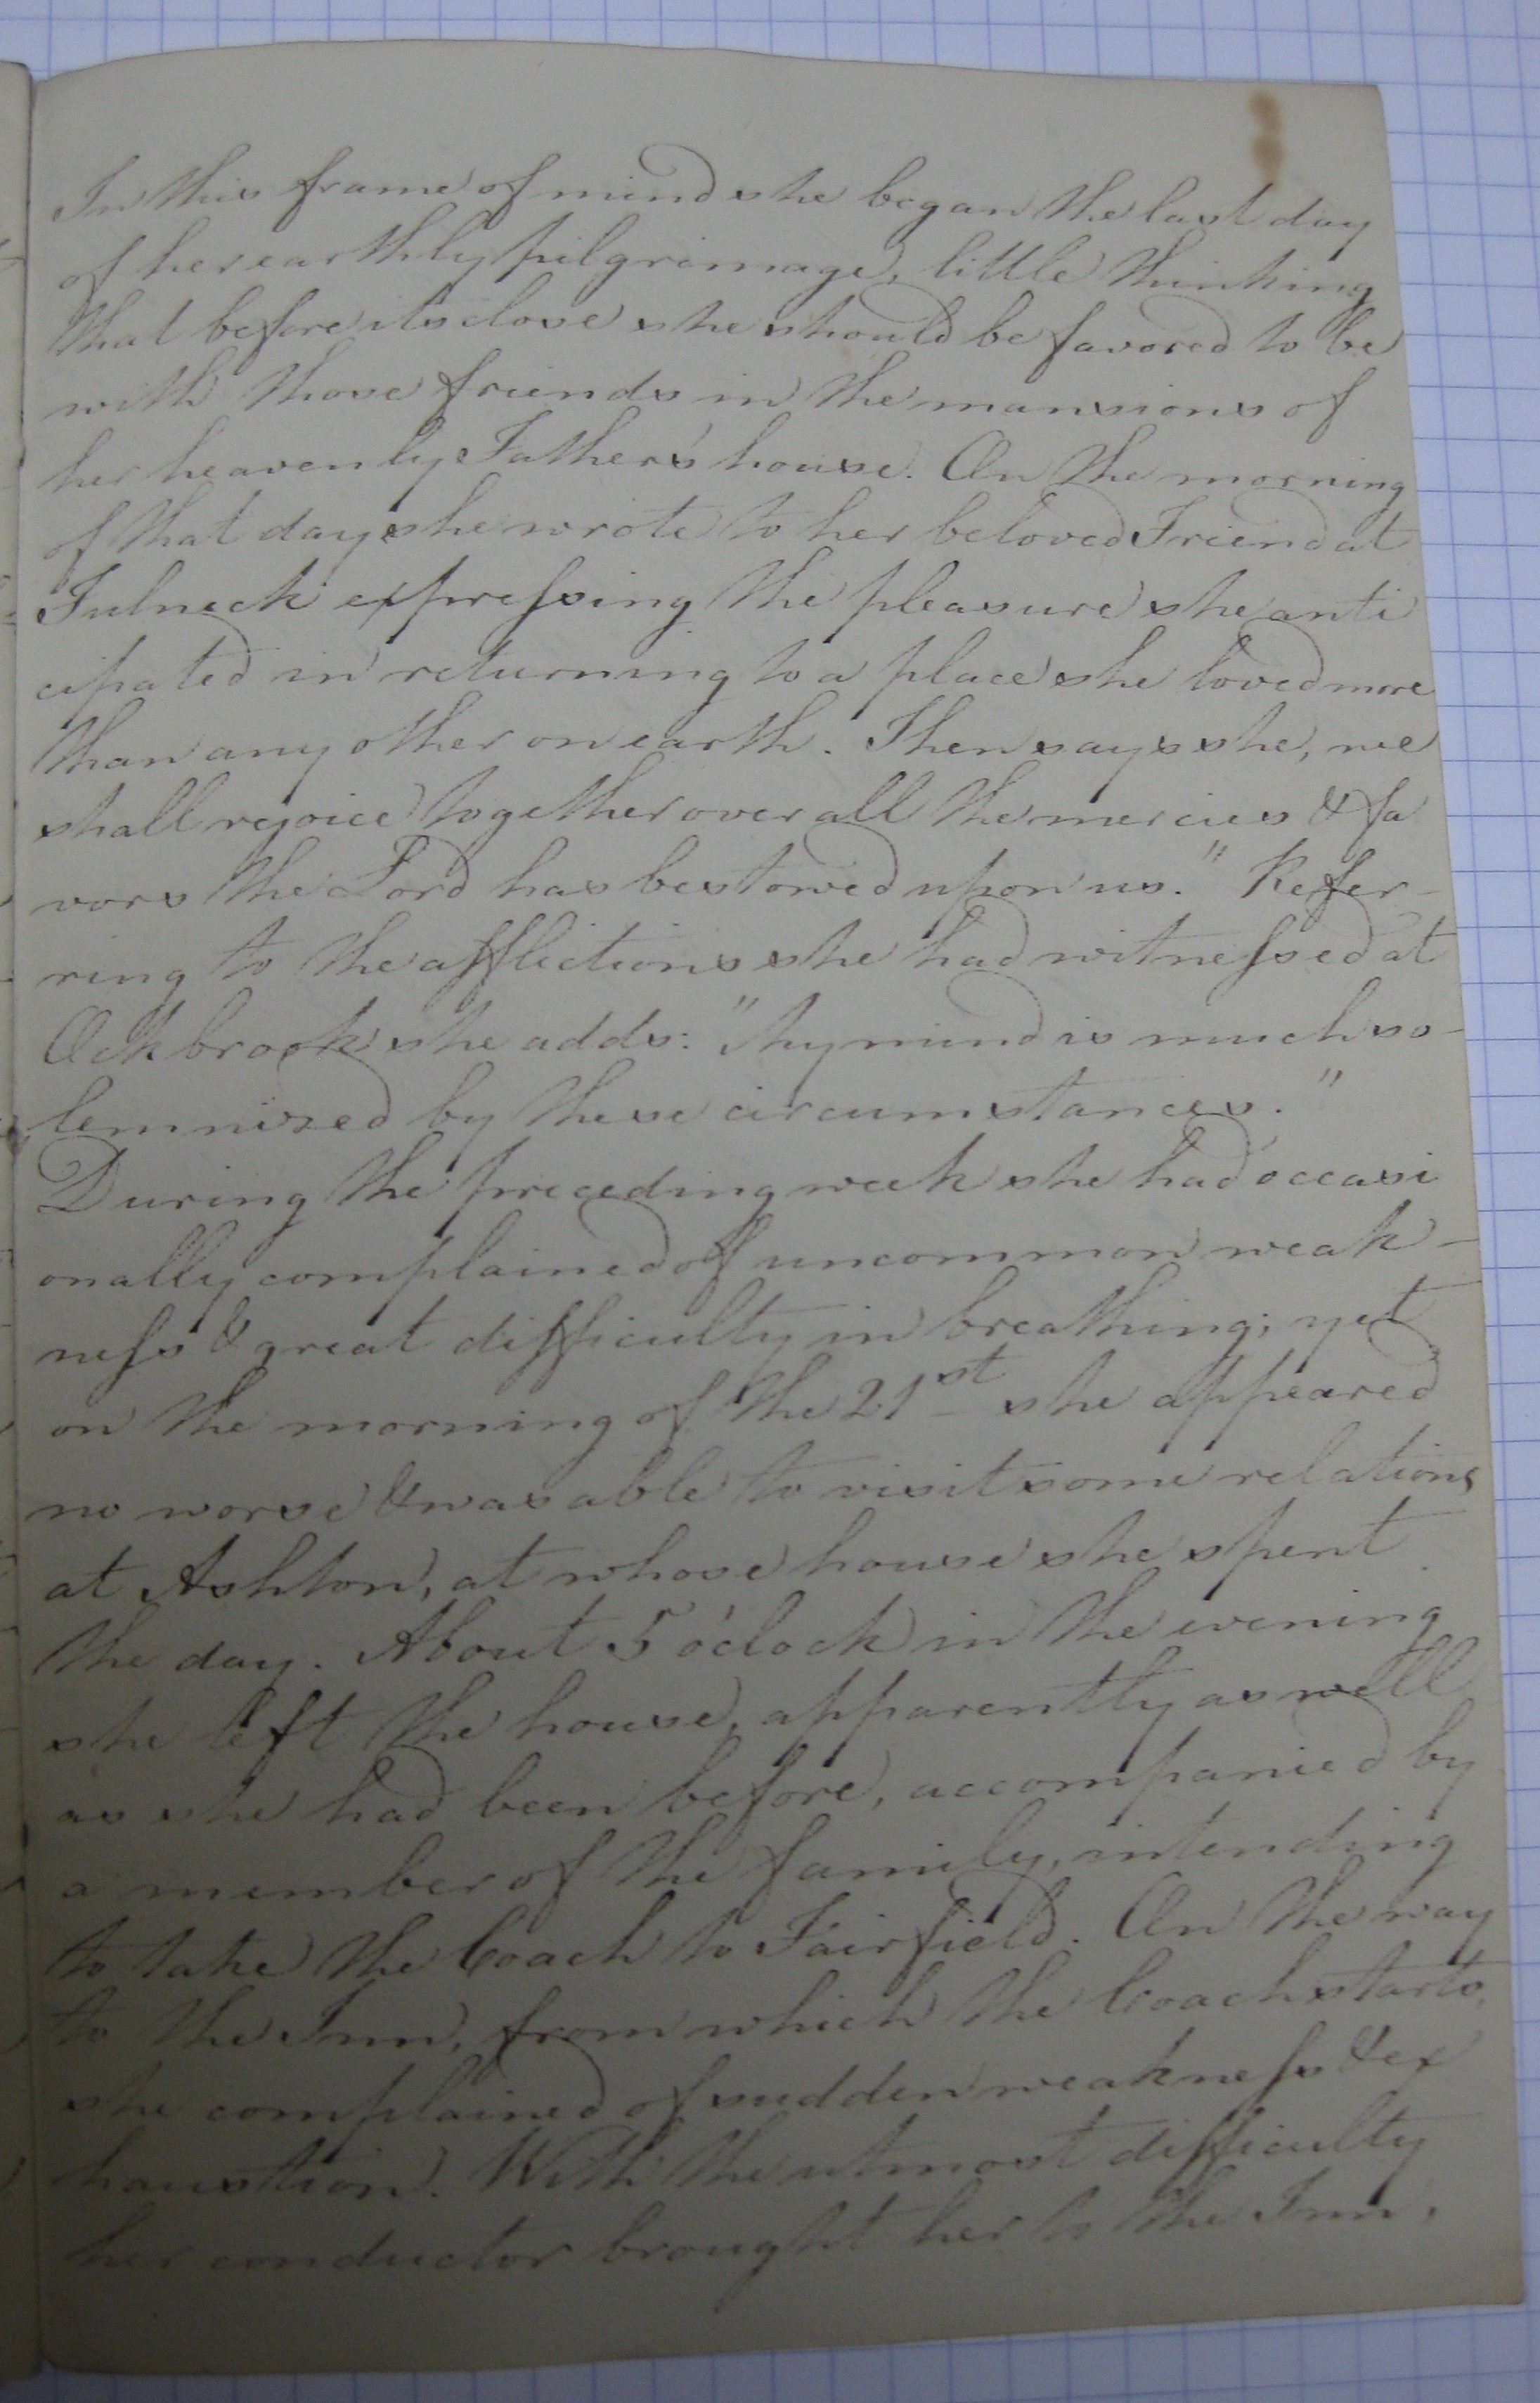 In this frame of mind she began the last day
of her earthly pilgrimage, little thinking
that before its close she should be favored to be
with those friends in the mansions of
her heavenly Father's house. On the morning
of that day she wrote to her beloved Friend at
Fulneck expressing the pleasure she anti
cipated in returning to a place she loved more
than any other on earth. Then says she, we
shall rejoice together over all the mercies & fa
vors the Lord has bestowed upon us." Refer-
ring to the afflictions she had witnessed at
Ockbrook she adds: "My mind is much so-
lemnized by these circumstances."
During the preceding week she had occasi
onally complained of uncommon weak-
ness & great difficulty in breathing; yet
on the morning of the 21st she appeared
no worse & was able to visit some relations
at Ashton, at whose house she spent
the day. About 5 o'clock in the evening
she left the house, apparently as well
as she had been before, accompanied by
a member of the family, intending
to take the Coach to Fairfield. On the way
to the Inn, from which the Coach starts,
she complained of sudden weakness & ex
haustion. With the utmost difficulty
her conductor brought her to the Inn,